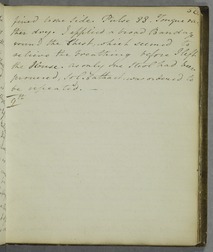 fined bone side. Pulse 88. Tongue
ther dry. I applied a broad Bandage
round the Chest, which seemed to
relieve the breathing before I left
the House. As only one Stool had been
procured, Sol. Cathart. was ordered to
be repeated. —
9th